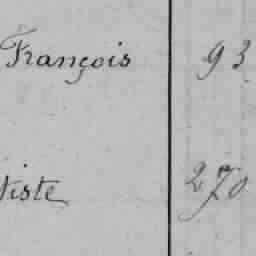 François 93
tiste 270